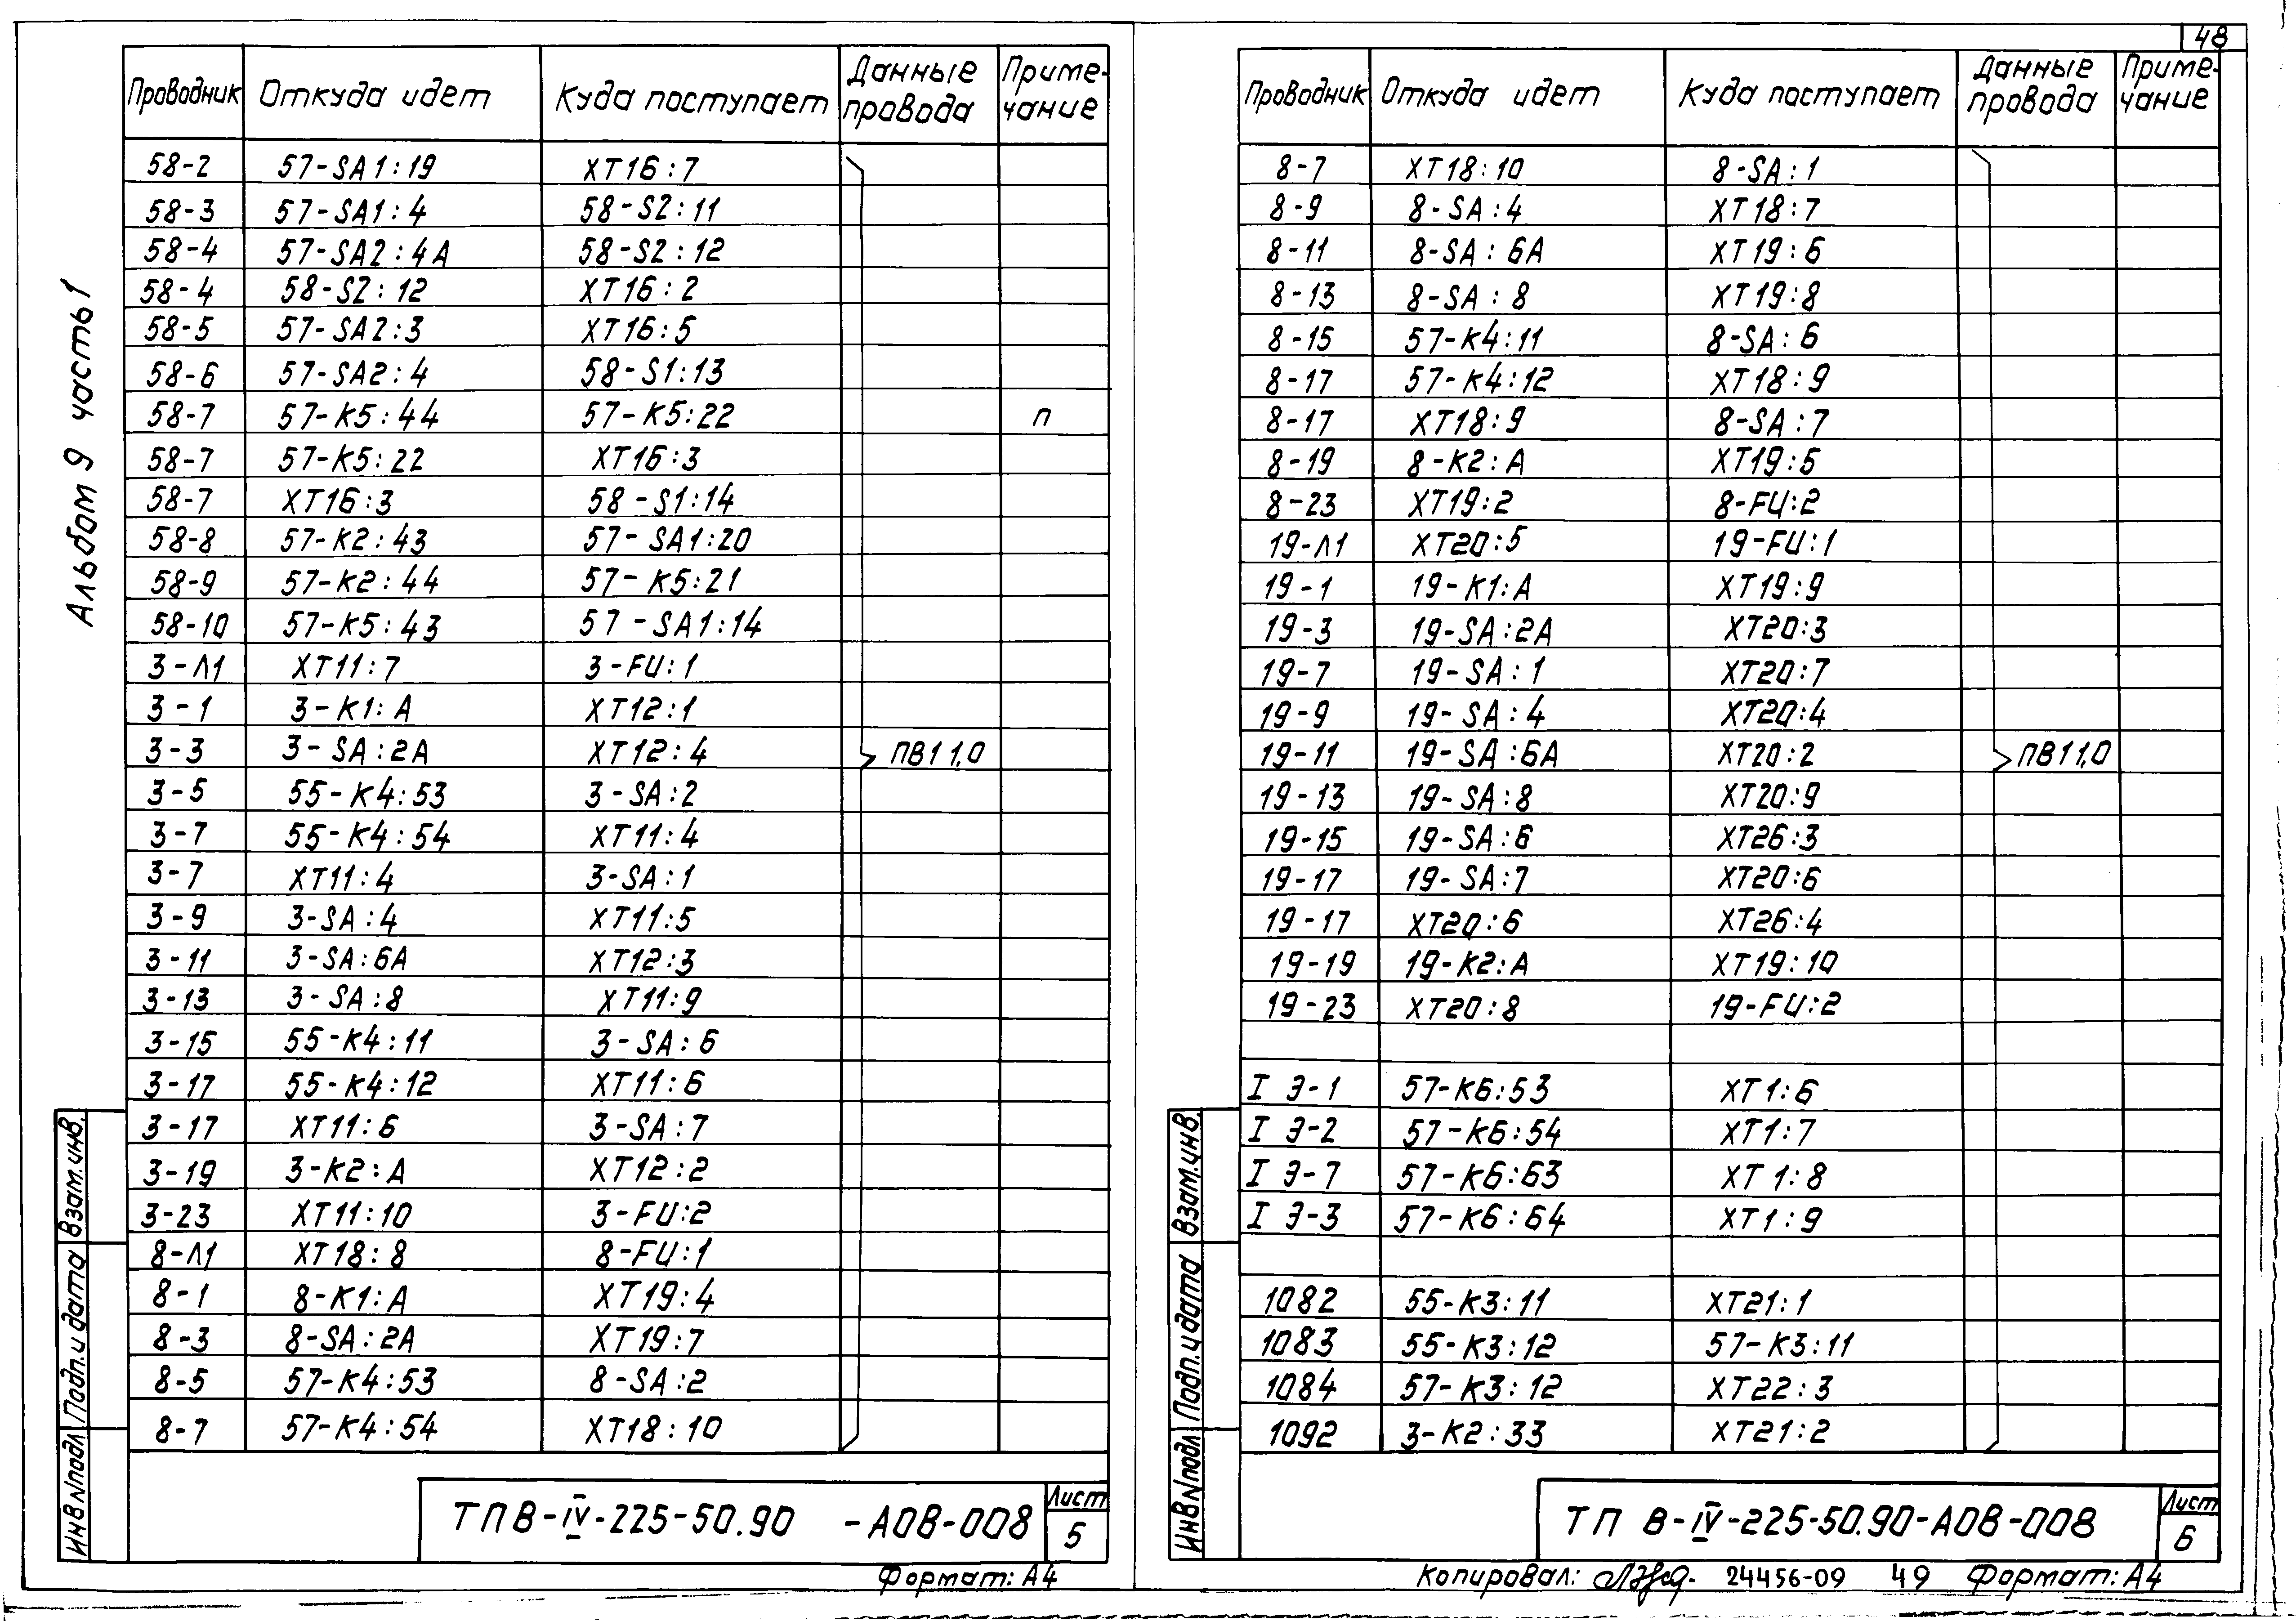 48
Альбом 9 часть 1
Проводник Откуда идет Куда поступает Данные провода Приме-чание
58-2 57-SA1:19 XT16:7
58-3 57-SA1:4 58-S2:11
58-4 57-SA2:4A 58-S2:12
58-4 58-S2:12 XT16:2
58-5 57-SA2:3 XT16:5
58-6 57-SA2:4 58-S1:13
58-7 57-K5:44 57-K5:22 п
58-7 57-K5:22 XT16:3
58-7 XT16:3 58-S1:14
58-8 57-K2:43 57-SA1:20
58-9 57-K2:44 57-K5:21
58-10 57-K5:43 57-SA1:14
3-Л1 XT11:7 3-FU:1
3-1 3-K1:A XT12:1
3-3 3-SA:2A XT12:4 ПВ1 1,0
3-5 55-K4:53 3-SA:2
3-7 55-K4:54 XT11:4
3-7 XT11:4 3-SA:1
3-9 3-SA:4 XT11:5
3-11 3-SA:6A XT12:3
3-13 3-SA:8 XT11:9
3-15 55-K4:11 3-SA:6
3-17 55-K4:12 XT11:6
3-17 XT11:6 3-SA:7
3-19 3-K2:A XT12:2
3-23 XT11:10 3-FU:2
8-Л1 XT18:8 8-FU:1
8-1 8-K1:A XT19:4
8-3 8-SA:2A XT19:7
8-5 57-K4:53 8-SA:2
8-7 57-K4:54 XT18:10
Взам.инв.
Подп.и дата
Инв N подл
ТП В-IV-225-50.90 -АОВ-008
Лист
5
Формат: А4
Проводник Откуда идет Куда поступает Данные провода Приме-чание
8-7 XT18:10 8-SA:1
8-9 8-SA:4 XT18:7
8-11 8-SA:6A XT19:6
8-13 8-SA:8 XT19:8
8-15 57-K4:11 8-SA:6
8-17 57-K4:12 XT18:9
8-17 XT18:9 8-SA:7
8-19 8-K2:A XT19:5
8-23 XT19:2 8-FU:2
19-Л1 XT20:5 19-FU:1
19-1 19-K1:A XT19:9
19-3 19-SA:2A XT20:3
19-7 19-SA:1 XT20:7
19-9 19-SA:4 XT20:4
19-11 19-SA:6A XT20:2 ПВ1 1,0
19-13 19-SA:8 XT20:9
19-15 19-SA:6 XT26:3
19-17 19-SA:7 XT20:6
19-17 XT20:6 XT26:4
19-19 19-K2:A XT19:10
19-23 XT20:8 19-FU:2
I Э-1 57-K6:53 XT1:6
I Э-2 57-K6:54 XT1:7
I Э-7 57-K6:63 XT1:8
I Э-3 57-K6:64 XT1:9
1082 55-K3:11 XT21:1
1083 55-K3:12 57-K3:11
1084 57-K3:12 XT22:3
1092 3-K2:33 XT21:2
Взам.инв.
Подп.и дата
Инв N подл
ТП В-IV-225-50.90-АОВ-008
Лист
6
Копировал: 24456-09 49 Формат: А4